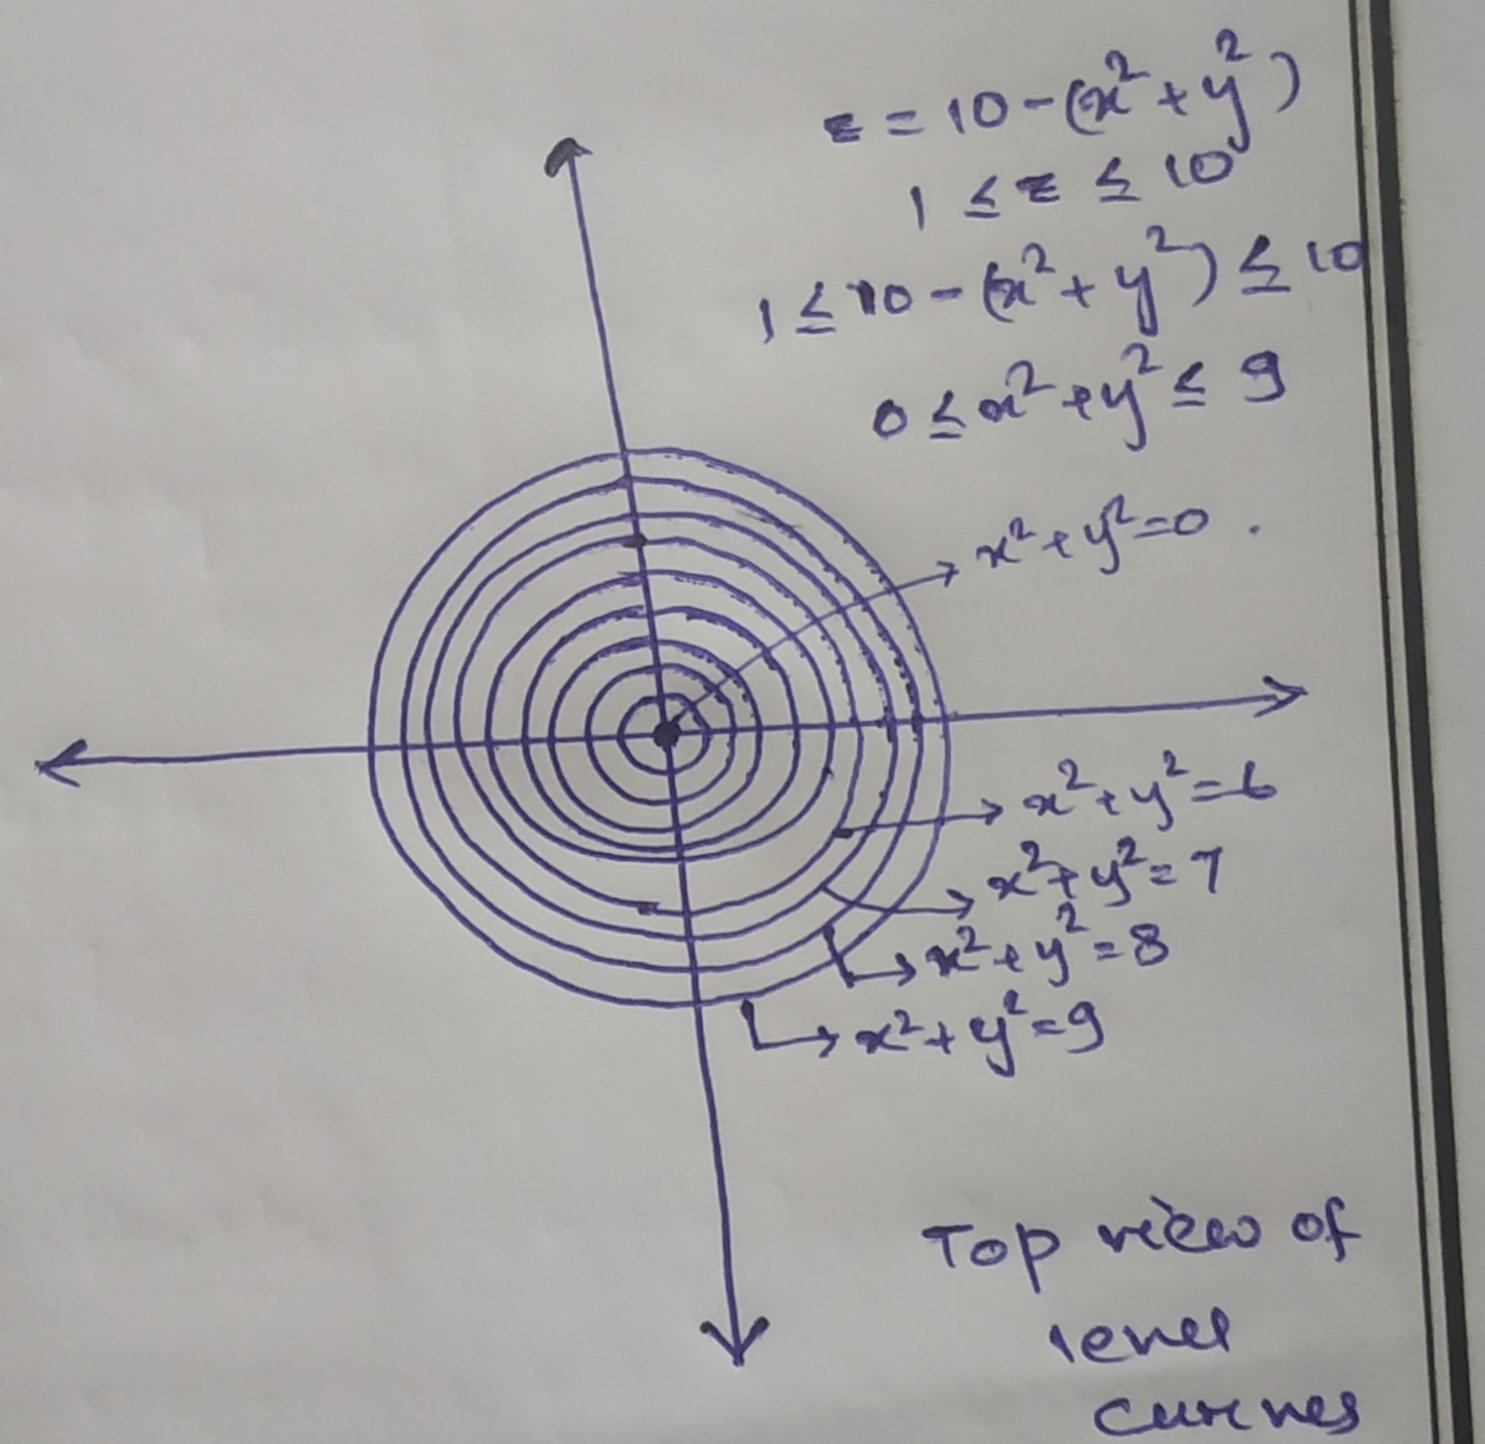 z = 10 - (x² + y²)
1 ≤ z ≤ 10
1 ≤ 10 - (x² + y²) ≤ 10
0 ≤ x² + y² ≤ 9
x² + y² = 0 .
x² + y² = 6
x² + y² = 7
x² + y² = 8
x² + y² = 9
Top view of
level
curves